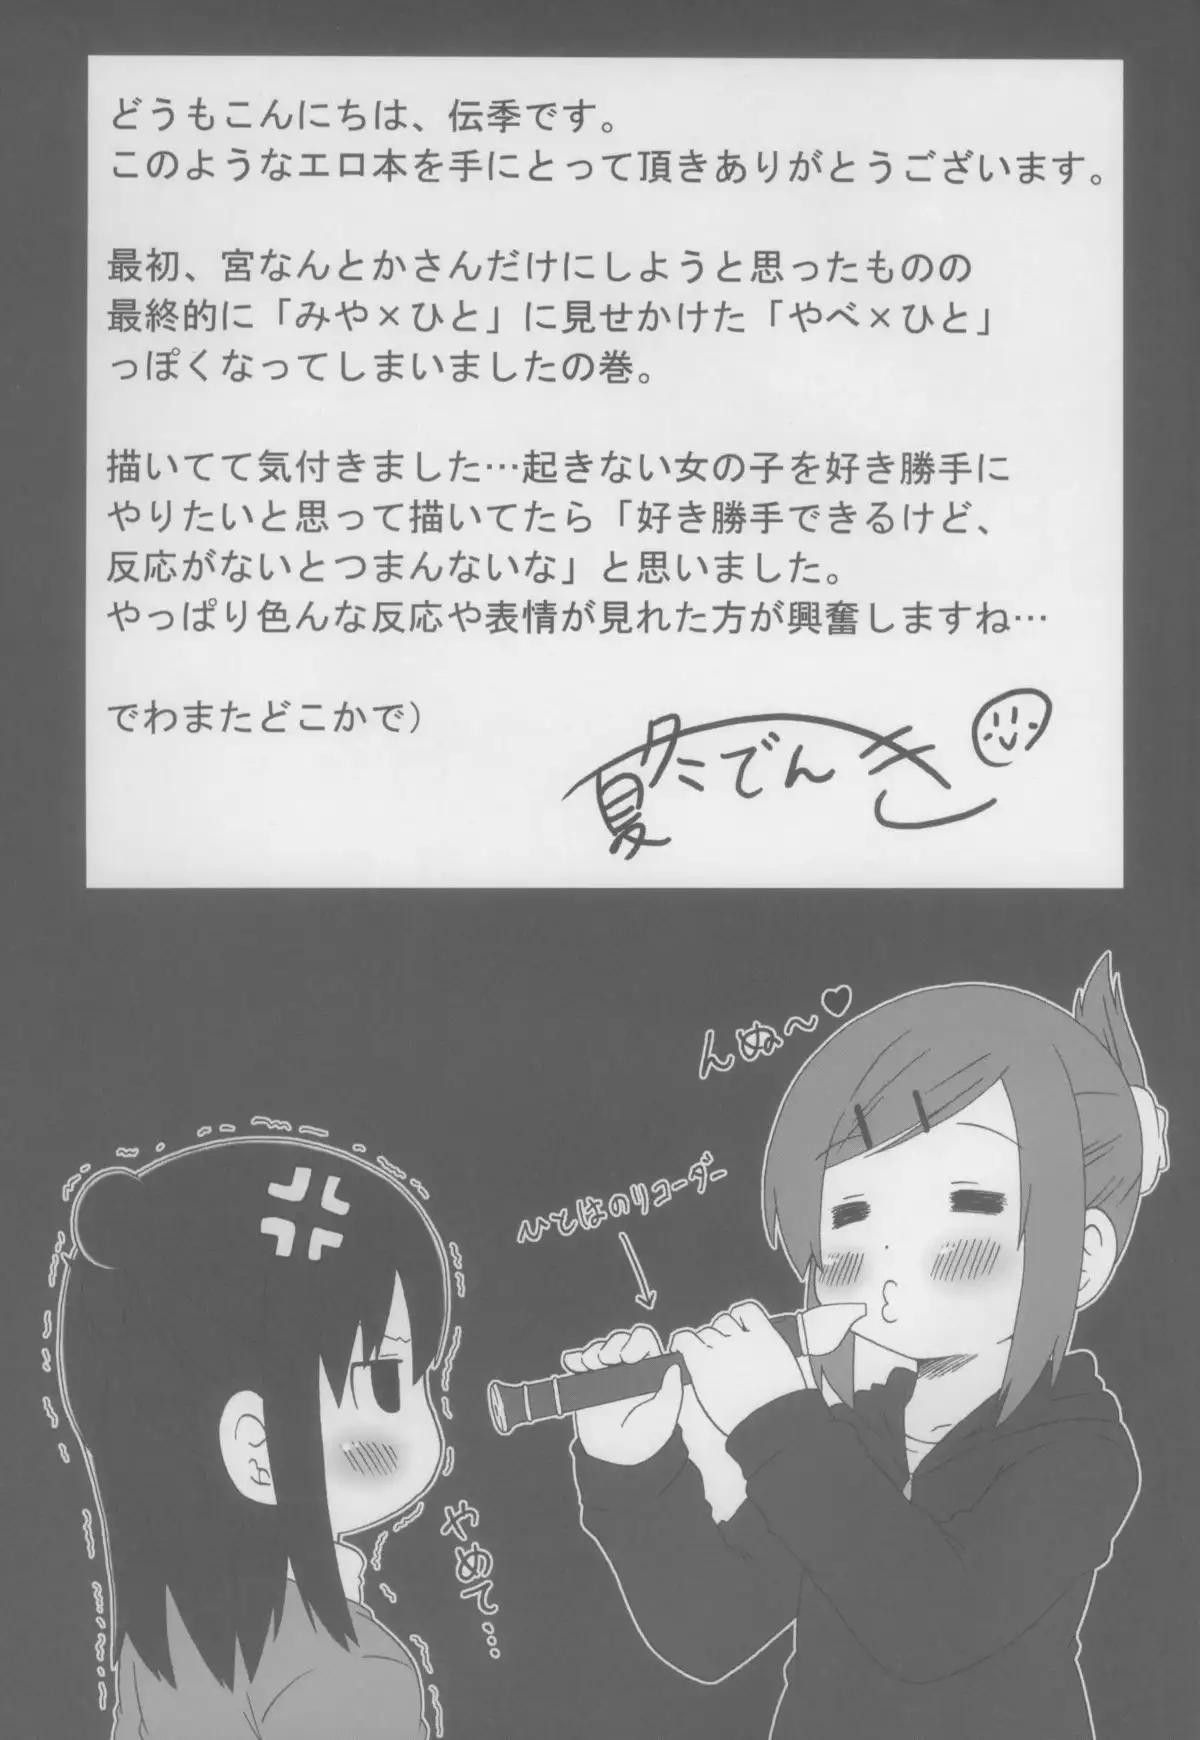 どうもこんにちは、伝季です。
このようなエロ本を手にとって頂きありがとうございます。
最初、宮なんとかさんだけにしようと思ったものの
最終的に「みや×ひと」に見せかけた「やべ×ひと」
っぽくなってしまいましたの巻。
描いてて気付きました…起きない女の子を好き勝手に
やりたいと思って描いてたら「好き勝手できるけど、
反応がないとつまんないな」と思いました。
やっぱり色んな反応や表情が見れた方が興奮しますね…
でわまたどこかで）
夏冬でんき
んぬ～♡
ひとはのリコーダー
やめて…